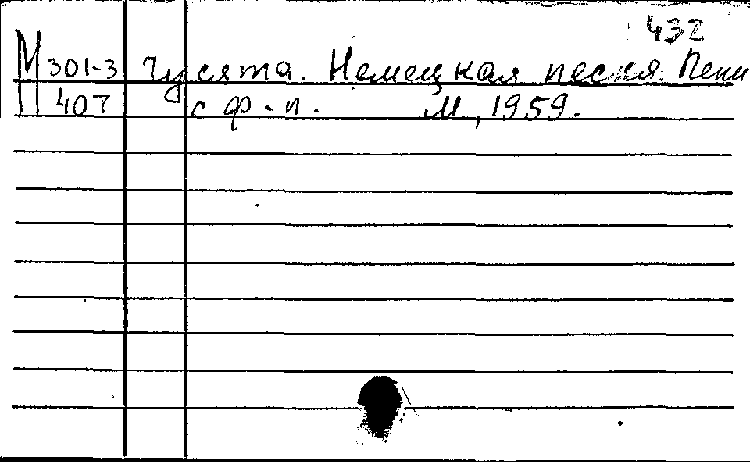 432
М 301-3 Гусята. Немецкая песня. Пени
407 с ф.-п. М., 1959.